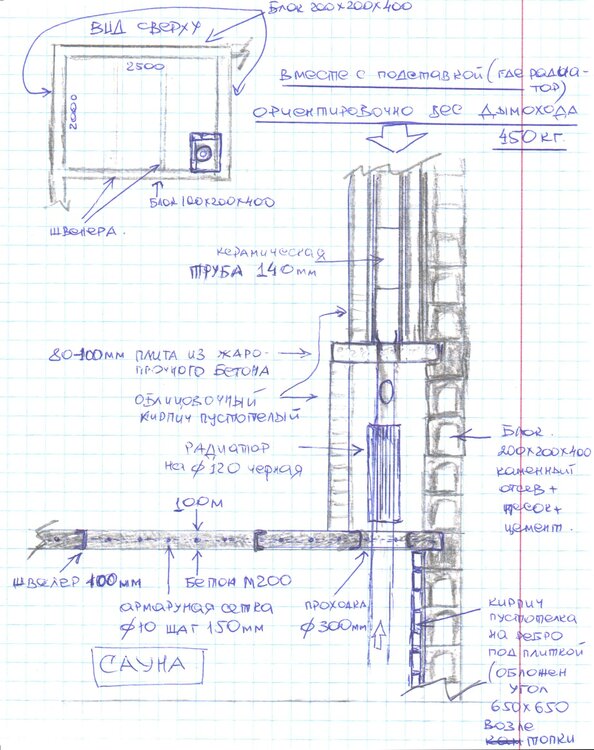 Вид сверху
Блок 200х200х400
2500
2000
Блок 100х200х400
швелера.
Вместе с подставкой (где радиа-
тор)
ориентировочно вес дымохода
450 кг.
керамическая
труба 140мм
80-100мм плита из жаро-
прочного бетона
облицовочный
кирпич пустотелый
радиатор
на ф120 черная
Блок
200х200х400
каменный
отсев+
песок+
цемент.
100м
швелер 100мм
Бетон М200
армаруная сетка
ф10 шаг 150мм
проходка
ф300мм
Сауна
кирпич
пустотелка
на ребро
под плиткой
(обложен
угол
650х650
возле
топки